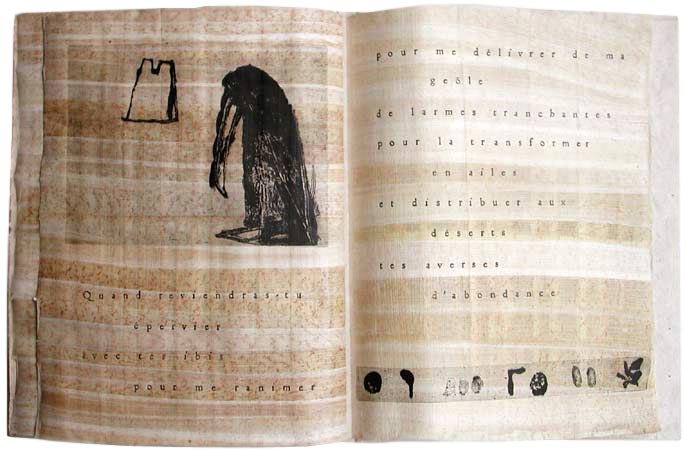 Quand reviendras-tu
épervier
avec tes ibis
pour me ranimer
pour me délivrer de ma
geôle
de larmes tranchantes
pour la transformer
en ailes
et distribuer aux
déserts
tes averses
d'abondance